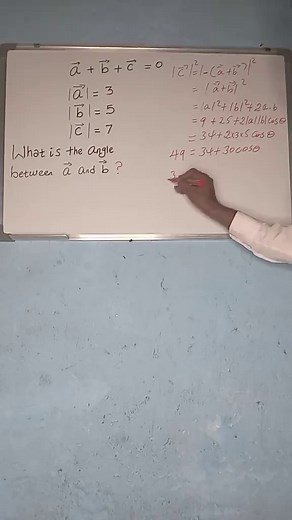 a⃗ + b⃗ + c⃗ = 0
|a⃗| = 3
|b⃗| = 5
|c⃗| = 7
What is the angle
between a⃗ and b⃗ ?
|c⃗|² = |-(a⃗+b⃗)|²
= |a⃗+b⃗|²
= |a|²+|b|²+2a.b
= 9 + 25 + 2|a||b|cosθ
= 34 + 2x3x5 cosθ
49 = 34 + 30cosθ
3